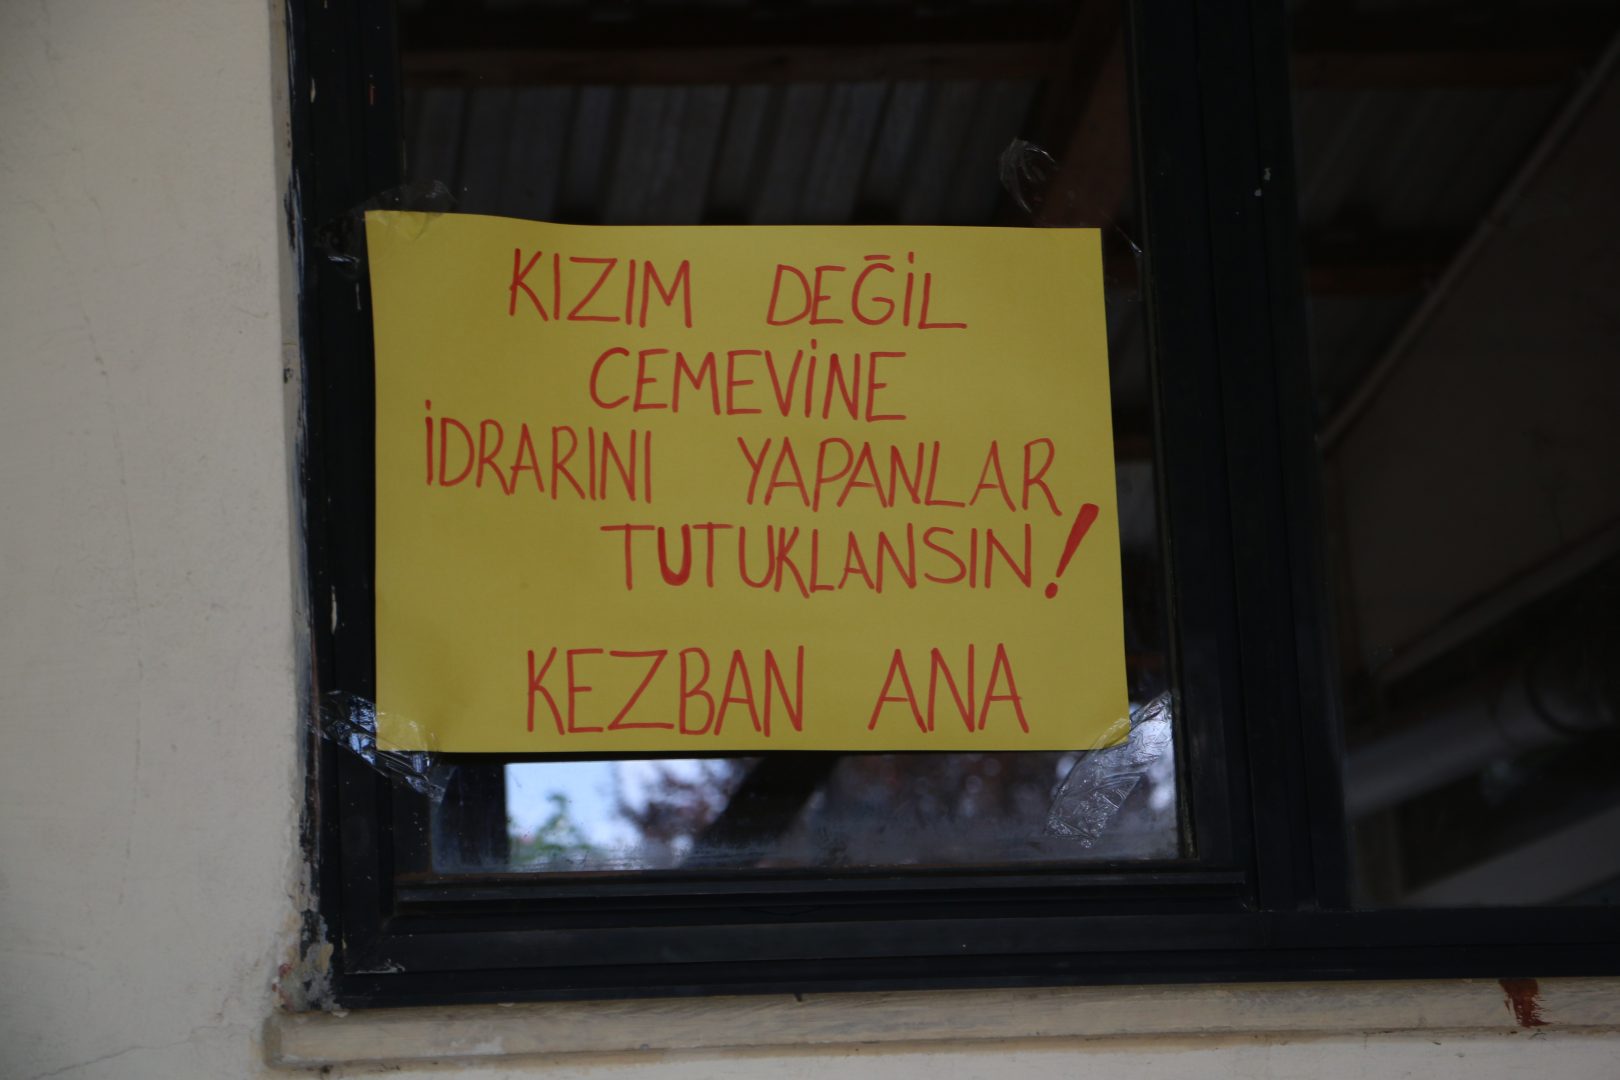 KIZIM DEĞİL
CEMEVİNE
İDRARINI YAPANLAR
TUTUKLANSIN!
KEZBAN ANA